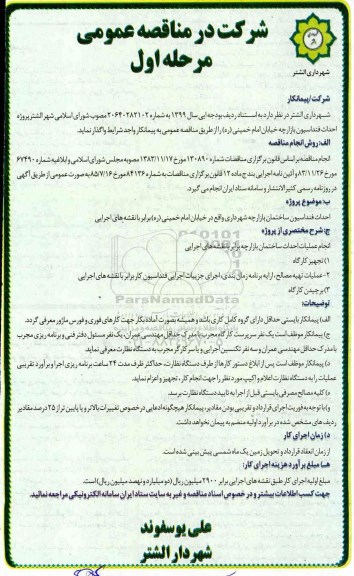 شرکت در مناقصه عمومی
مرحله اول
شهرداری الشتر
شرکت/پیمانکار
شهرداری الشتر در نظر دارد به استناد ردیف بودجه ایی سال ۱۳۹۹ به شماره ۲۰۶۴۰۲۸۲۱۰۲ مصوب شورای اسلامی شهر الشتر پروژه
احداث فنداسیون بازارچه خیابان امام خمینی (ره) را از طریق مناقصه عمومی به پیمانکار واجد شرایط واگذار نماید.
الف: روش انجام مناقصه
انجام مناقصه بر اساس قانون برگزاری مناقصات شماره ۱۳۰۸۹۰ مورخ ۱۳۸۳/۱۱/۱۷ مصوبه مجلس شورای اسلامی و ابلاغیه شماره ۶۷۴۹۰
مورخ ۸۳/۱۱/۲۶ و آئین نامه اجرایی بند ج ماده ۱۲ قانون برگزاری مناقصات به شماره ۸۴۱۳۶ مورخ ۸۵/۷/۱۶ به صورت عمومی از طریق آگهی
در روزنامه رسمی کثیر الانتشار و سامانه ستاد ایران انجام می گیرد.
ب: موضوع پروژه
احداث فنداسیون ساختمان بازارچه شهرداری واقع در خیابان امام خمینی (ره) برابر با نقشه های اجرایی
ج: شرح مختصری از پروژه
انجام عملیات احداث ساختمان بازارچه برابر نقشه های اجرایی
۱) تجهیز کارگاه
۲- عملیات تهیه مصالح، ارایه برنامه زمان بندی، اجرای جزییات اجرایی فنداسیون کار برابر با نقشه های اجرایی
۳) برچیدن کارگاه
ParsNamadData
توضیحات:
الف) پیمانکار بایستی حداقل دارای گروه کامل کاری باشد و همیشه بصورت آماده بکار جهت کارهای فوری و فورس ماژور معرفی گردد.
ج) پیمانکار موظف است یک نفر سرپرست کارگاه مجرب با مدرک حداقل مهندسی عمران، یک نفر مسئول دفتر فنی و برنامه ریزی مجرب
با مدرک حداقل مهندسی عمران و سه نفر تکنسین اجرایی و با سر کارگر مجرب به دستگاه نظارت معرفی نماید.
د) پیمانکار موظف است پس از ابلاغ دستور کارها از طرف دستگاه نظارت، حداکثر ظرف مدت ۲۴ ساعت برنامه ریزی اجرا و برآورد تقریبی
عملیات را به دستگاه نظارت اعلام و اکیپ مورد نظر را جهت انجام کار، تجهیز و اعزام نماید.
ه) کلیه مصالح مصرفی بایستی قبل از اجرا به تایید دستگاه نظارت برسد.
و) با توجه به فوریت اجرای قرارداد و تقریبی بودن مقادیر، پیمانکار هیچگونه ادعایی در خصوص تغییرات بالاتر و یا پایین تر از ۲۵ درصد مقادیر
ردیف های مشخص شده در برآورد اولیه منضم به پیمان نخواهد داشت.
د) زمان اجرای کار
از زمان انعقاد قرارداد و تحویل زمین یک ماه شمسی پیش بینی شده است.
هـ) مبلغ برآورد هزینه اجرای کار:
مبلغ اولیه اجرای کار طبق نقشه های اجرایی برابر ۲۹۰۰ میلیون ریال (دو میلیارد و نهصد میلیون ریال) است.
جهت کسب اطلاعات بیشتر و در خصوص اسناد مناقصه و غیر به سایت ستاد ایران سامانه الکترونیکی مراجعه نمائید.
علی یوسفوند
شهردار الشتر